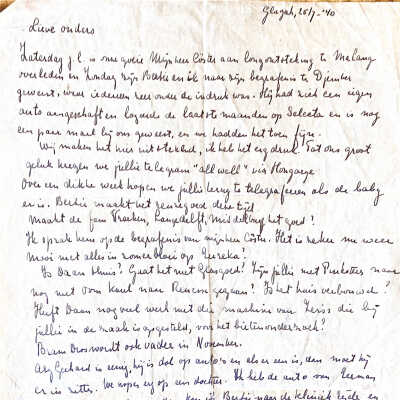 Glagah, 25/7-'40
Lieve ouders
Zaterdag j.l. is onze goeie Mijnheer Cöster aan longontsteking te Malang
overleden en Zondag zijn Bertie en ik naar zijn begrafenis te Djember
geweest, waar iedereen zeer onder de indruk was. Hij had zich een eigen
auto aangeschaft en logeerde de laatste maanden op Selecta en is nog
een paar maal bij ons geweest, en we hadden het toen fijn.
Wij maken het hier uitstekend, ik heb het erg druk. Tot ons groot
geluk kregen we jullie telegram "all well" via Hongarije
Over een dikke week hopen we jullie terug te telegraferen als de baby
er is. Bertie maakt het
maakt de fam het goed?
Ik sprak hem op de begrafenis van mijnheer Cöster. Het is zeker nu weer
mooi met alles in zomerbloei op
Is Daan thuis? Gaat het met goed? Zijn jullie met Pinksteren naar
nog met Oom Karel naar gegaan? Is het huis verbouwd?
Heeft Daan nog veel werk met die machine van Zeiss die bij
jullie in de zaak is opgesteld, voor het bietenonderzoek?
Bram wordt ook vader in November.
is eenig, hij is dol op auto's en als er een is, dan moet hij
er in zitten. We hopen op een dochter. Ik heb de auto van
Bertie naar de kliniek